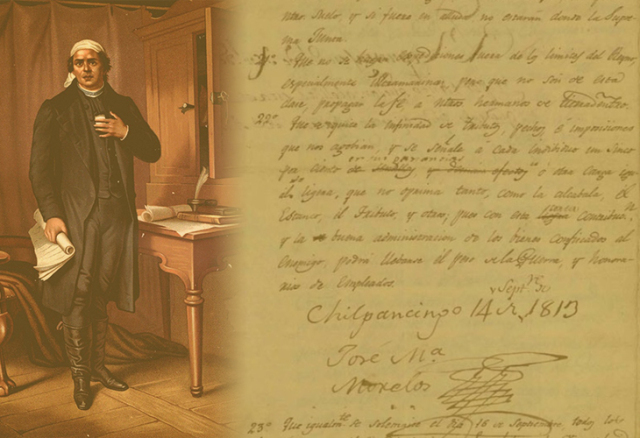 otro Suelo, y si fuere en ayuda no estarán donde la Supre
ma Junta.
21º Que no se hagan expediciones fuera de los limites del Reyno,
especialmente Ultramarinas, pero que no son de esta
clase propagar la fé a nuestros hermanos de tierradentro.
22º Que se quite la infinidad de tributos, pechos é imposiciones
que nos agobian, y se señale á cada individuo un cinco
por ciento en sus ganancias
ligera, que no oprima tanto, como la alcabala, el
Estanco, el Tributo, y otros, pues con esta
y la buena administracion de los bienes confiscados al
Enemigo, podrá llebarse el peso de la Guerra, y honora-
rios de Empleados.
Chilpancingo 14 de Sept.re de 1813
José M.a
Morelos
23º Que igualm.te se solemnice el dia 16 de Septiembre, todos los